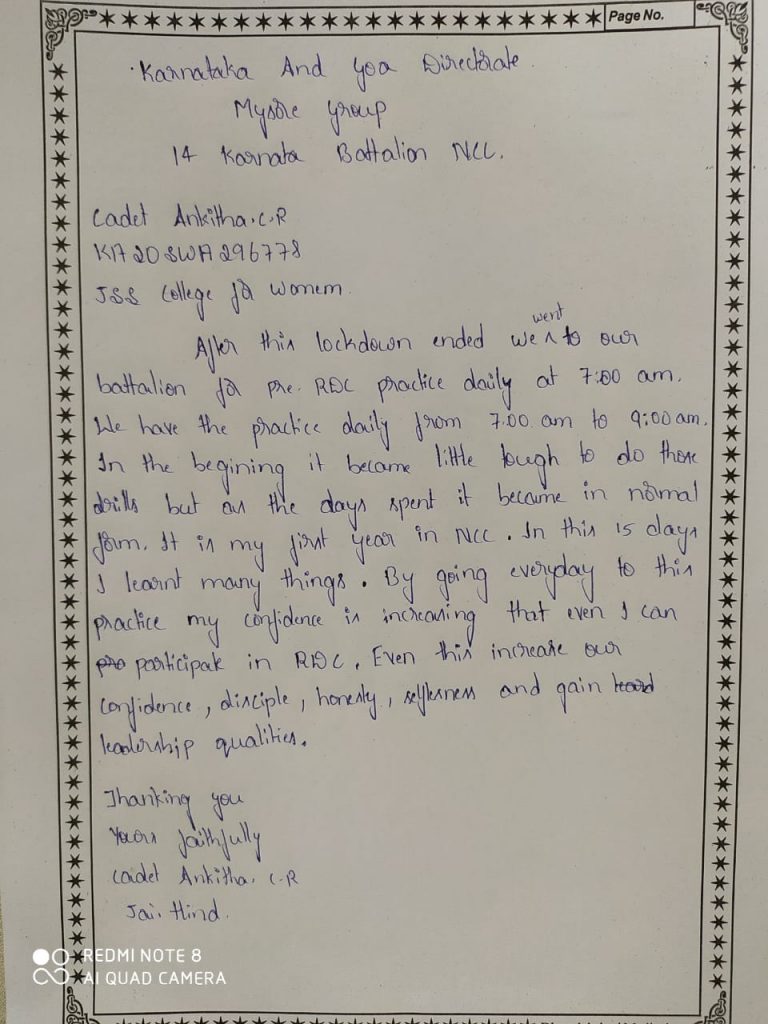 Page No.
Karnataka And Goa Directorate
Mysore Group
14 Karnata Battalion NCC.
Cadet Ankitha.C.R
KA20SWA296778
JSS College for Womem
After this lockdown ended we went to our
battalion for pre. RDC practice daily at 7:00 am.
We have the practice daily from 7.00 am to 9:00 am.
In the begining it became little tough to do those
drills but as the days spent it became in normal
form. It is my first year in NCC. In this 15 days
I learnt many things. By going everyday to this
practice my confidence is increasing that even I can
participate in RDC. Even this increase our
confidence, disciple, honesty, selflesness and gain
leadership qualities.
Thanking you
Yours faithfully
Cadet Ankitha. C.R
Jai. Hind.
REDMI NOTE 8
AI QUAD CAMERA